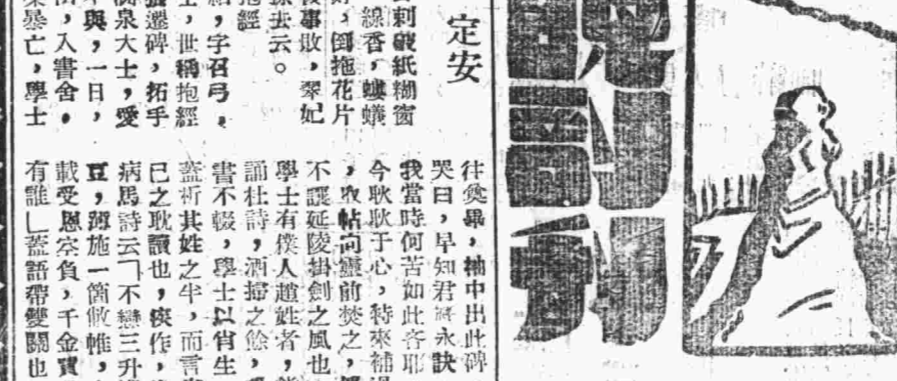 定安
刺破紙糊窗
線香,螻蟻
,倒拖花片
事敗,翠妃
去云。
抱經
,字召弓,
,世稱抱經
遷碑,拓手
泉大士,愛
與,一日,
,入書舍,
暴亡,學士
往奠畢,袖中出此碑
哭曰,早知君將永訣
我當時何苦如此吝耶
今耿耿于心,特來補過
,取帖向靈前焚之,
不讓延陵掛劍之風也
學士有僕人趙姓者,能
誦杜詩,洒掃之餘,
書不輟,學士以肖生
蓋析其姓之半,而言
已之耽讀也,疾作,
病馬詩云「不戀三升
豆,施一箇敝帷,
載受恩空負,千金寶
有誰」蓋語帶雙關也